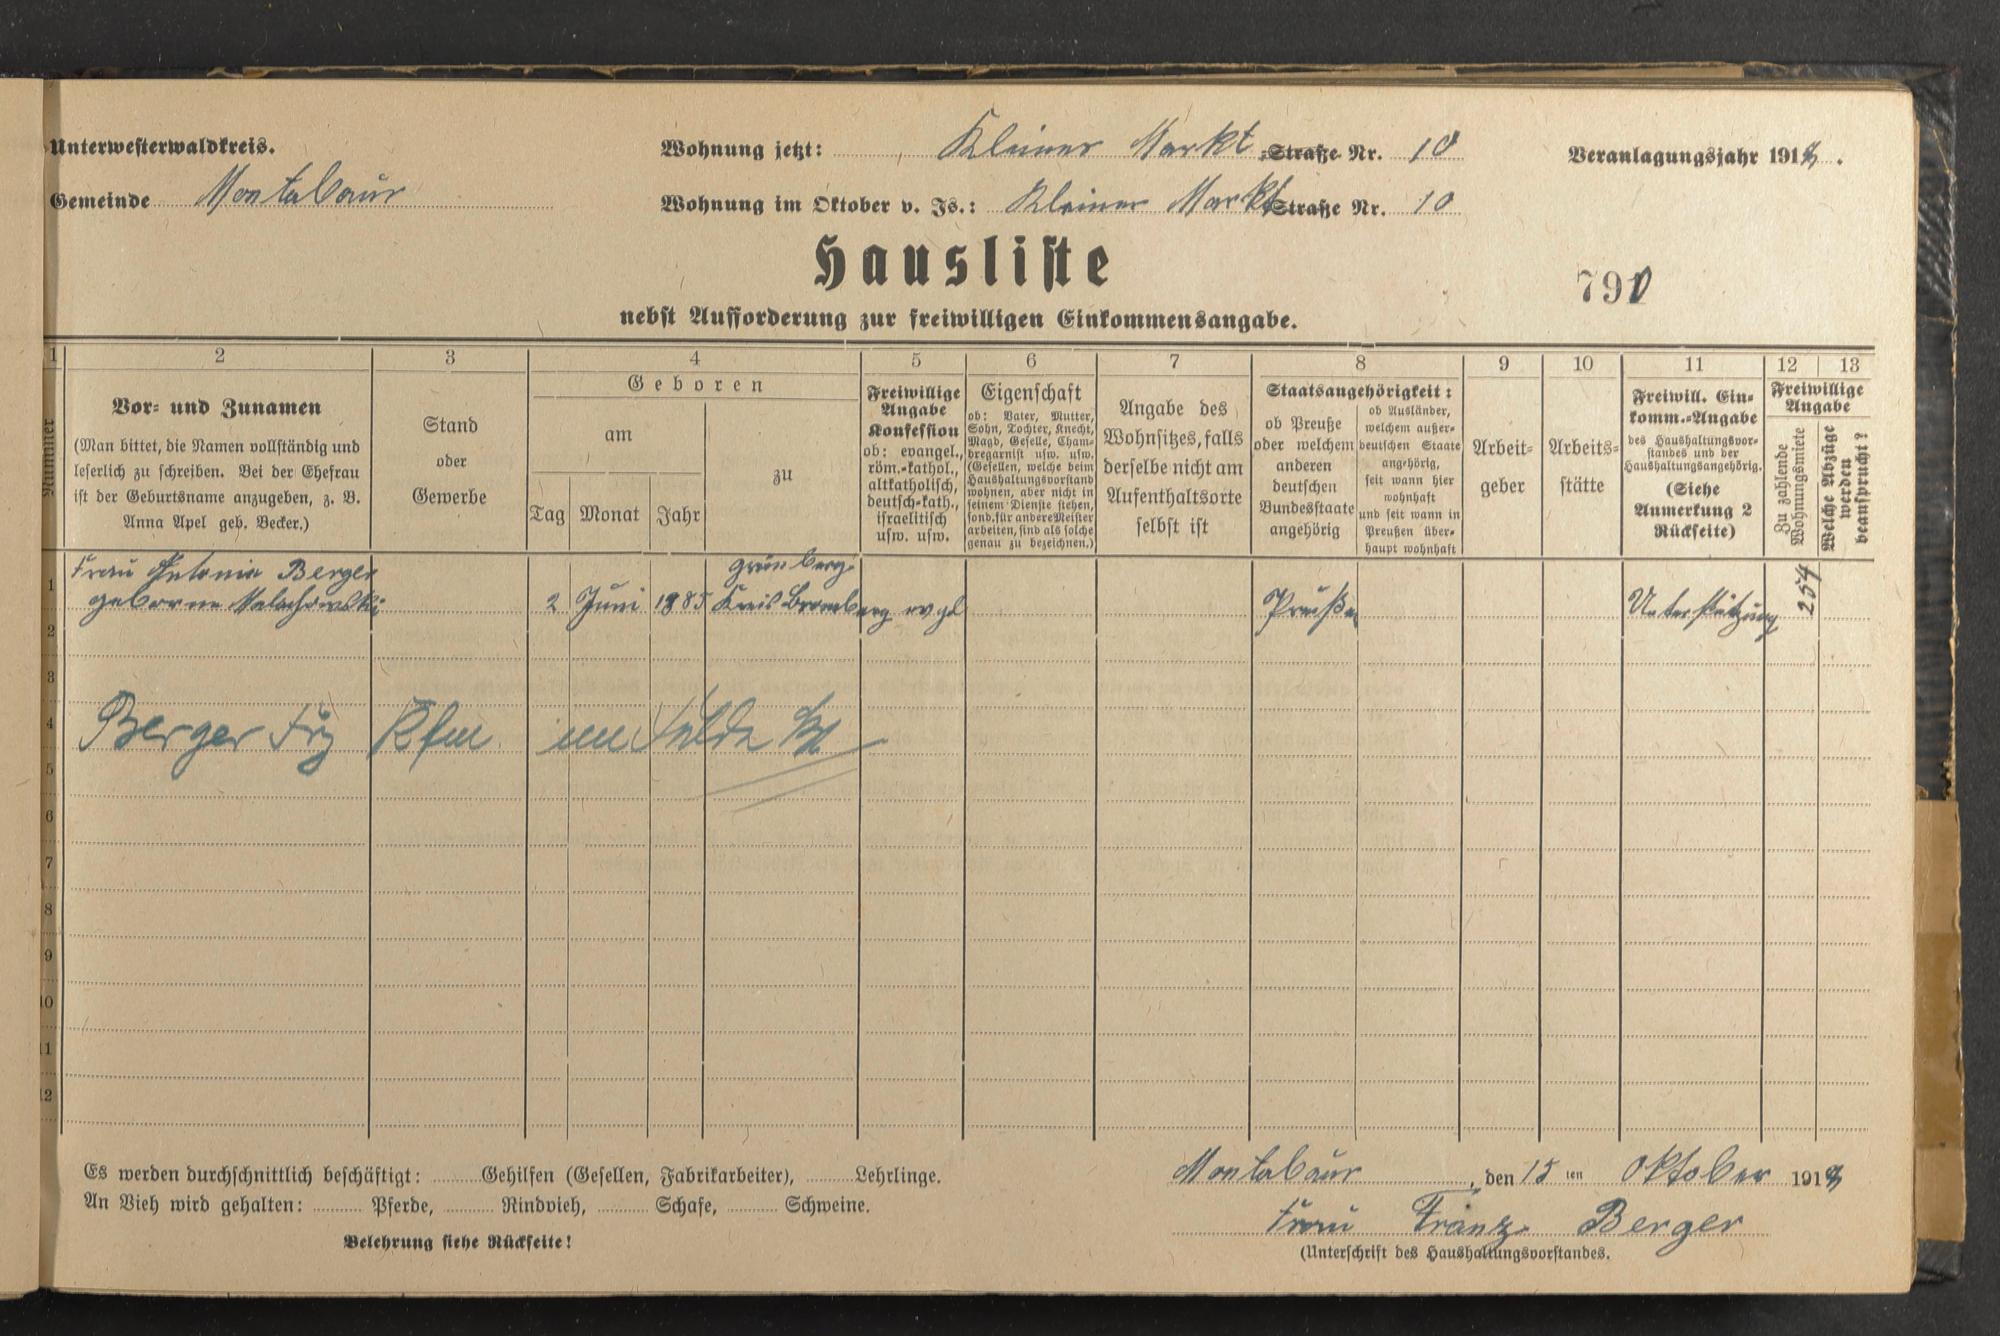 Unterwesterwaldkreis.
Gemeinde Montabaur
Wohnung jetzt: Kleiner Markt Straße Nr. 10
Wohnung im Oktober v. Js.: Kleiner Markt Straße Nr. 10
Veranlagungsjahr 191
Hausliste
790
nebst Aufforderung zur freiwilligen Einkommensangabe.
1 2 3 4 5 6 7 8 9 10 11 12 13
Nummer
Vor- und Zunamen
(Man bittet, die Namen vollständig und
leserlich zu schreiben. Bei der Ehefrau
ist der Geburtsname anzugeben, z. B.
Anna Apel geb. Becker.)
Stand
oder
Gewerbe
Geboren
am
zu
Tag Monat Jahr
Freiwillige
Angabe
Konfession
ob: evangel.,
röm.-kathol.,
altkatholisch,
deutsch-kath.,
israelitisch
usw. usw.
Eigenschaft
ob: Vater, Mutter,
Sohn, Tochter, Knecht,
Magd, Geselle, Cham-
bregarnist usw. usw.
(Gesellen, welche beim
Haushaltungsvorstand
wohnen, aber nicht in
seinem Dienste stehen,
sond. für andere Meister
arbeiten, sind als solche
genau zu bezeichnen.)
Angabe des
Wohnsitzes, falls
derselbe nicht am
Aufenthaltsorte
selbst ist
Staatsangehörigkeit:
ob Preuße
oder welchem
anderen
deutschen
Bundesstaate
angehörig
ob Ausländer,
welchem außer-
deutschen Staate
angehörig,
seit wann hier
wohnhaft
und seit wann in
Preußen über-
haupt wohnhaft
Arbeit-
geber
Arbeits-
stätte
Freiwill. Ein-
komm.-Angabe
des Haushaltungsvor-
standes und der
Haushaltungsangehörig.
(Siehe
Anmerkung 2
Rückseite)
Freiwillige
Angabe
Zu zahlende
Wohnungsmiete
Welche Abzüge
werden
beansprucht?
1 Frau Antonie Berger grünberg
geborne 2 Juni 1885 Kreis Bromberg evgl Preuße Unterstützung 254
2
3
4 Berger Frz Kfm. im Felde
5
6
7
8
9
10
11
12
Es werden durchschnittlich beschäftigt: Gehilfen (Gesellen, Fabrikarbeiter), Lehrlinge.
An Vieh wird gehalten: Pferde, Rindvieh, Schafe, Schweine.
Belehrung siehe Rückseite!
Montabaur, den 15 ten Oktober 191
Frau Franz Berger
(Unterschrift des Haushaltungsvorstandes.